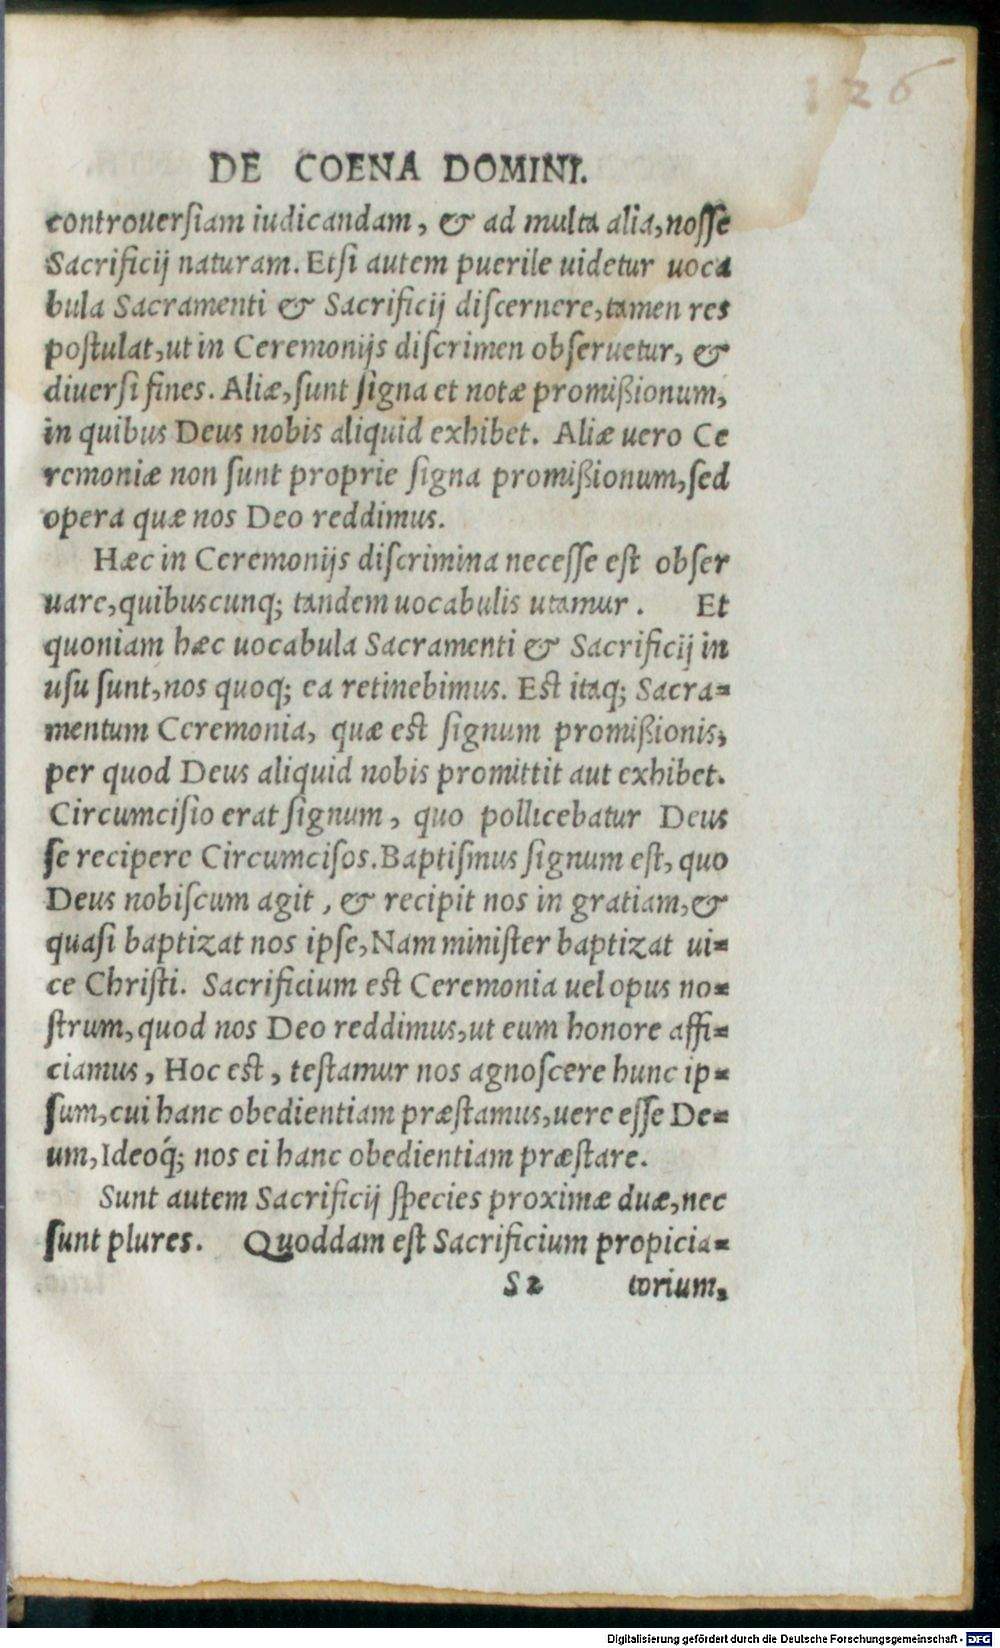 126
DE COENA DOMINI.
controuerſiam iudicandam, & ad multa alia, noſſe
Sacrificij naturam. Etſi autem puerile uidetur uoca
bula Sacramenti & Sacrificij diſcernere, tamen res
poſtulat, ut in Ceremonijs diſcrimen obſeruetur, &
diuerſi fines. Aliæ, ſunt ſigna et notæ promißionum,
in quibus Deus nobis aliquid exhibet. Aliæ uero Ce
remoniæ non ſunt proprie ſigna promißionum, ſed
opera quæ nos Deo reddimus.
Hæc in Ceremonijs diſcrimina neceſſe eſt obſer
uare, quibuscunq; tandem uocabulis utamur. Et
quoniam hæc uocabula Sacramenti & Sacrificij in
uſu ſunt, nos quoq; ea retinebimus. Eſt itaq; Sacra-
mentum Ceremonia, quæ eſt ſignum promißionis,
per quod Deus aliquid nobis promittit aut exhibet.
Circumciſio erat ſignum, quo pollicebatur Deus
ſe recipere Circumciſos. Baptiſmus ſignum eſt, quo
Deus nobiſcum agit, & recipit nos in gratiam, &
quaſi baptizat nos ipſe, Nam miniſter baptizat ui-
ce Chriſti. Sacrificium eſt Ceremonia uel opus no-
ſtrum, quod nos Deo reddimus, ut eum honore affi-
ciamus, Hoc eſt, teſtamur nos agnoſcere hunc ip-
ſum, cui hanc obedientiam præſtamus, uere eſſe De-
um, Ideoq́; nos ei hanc obedientiam præſtare.
Sunt autem Sacrificij ſpecies proximæ duæ, nec
ſunt plures. Quoddam eſt Sacrificium propicia-
S 2 torium,
Digitalisierung gefördert durch die Deutsche Forschungsgemeinschaft - DFG